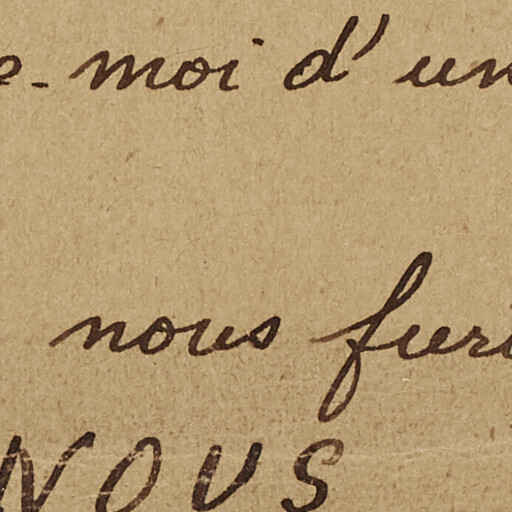 -moi d'un
nous fur
NOUS